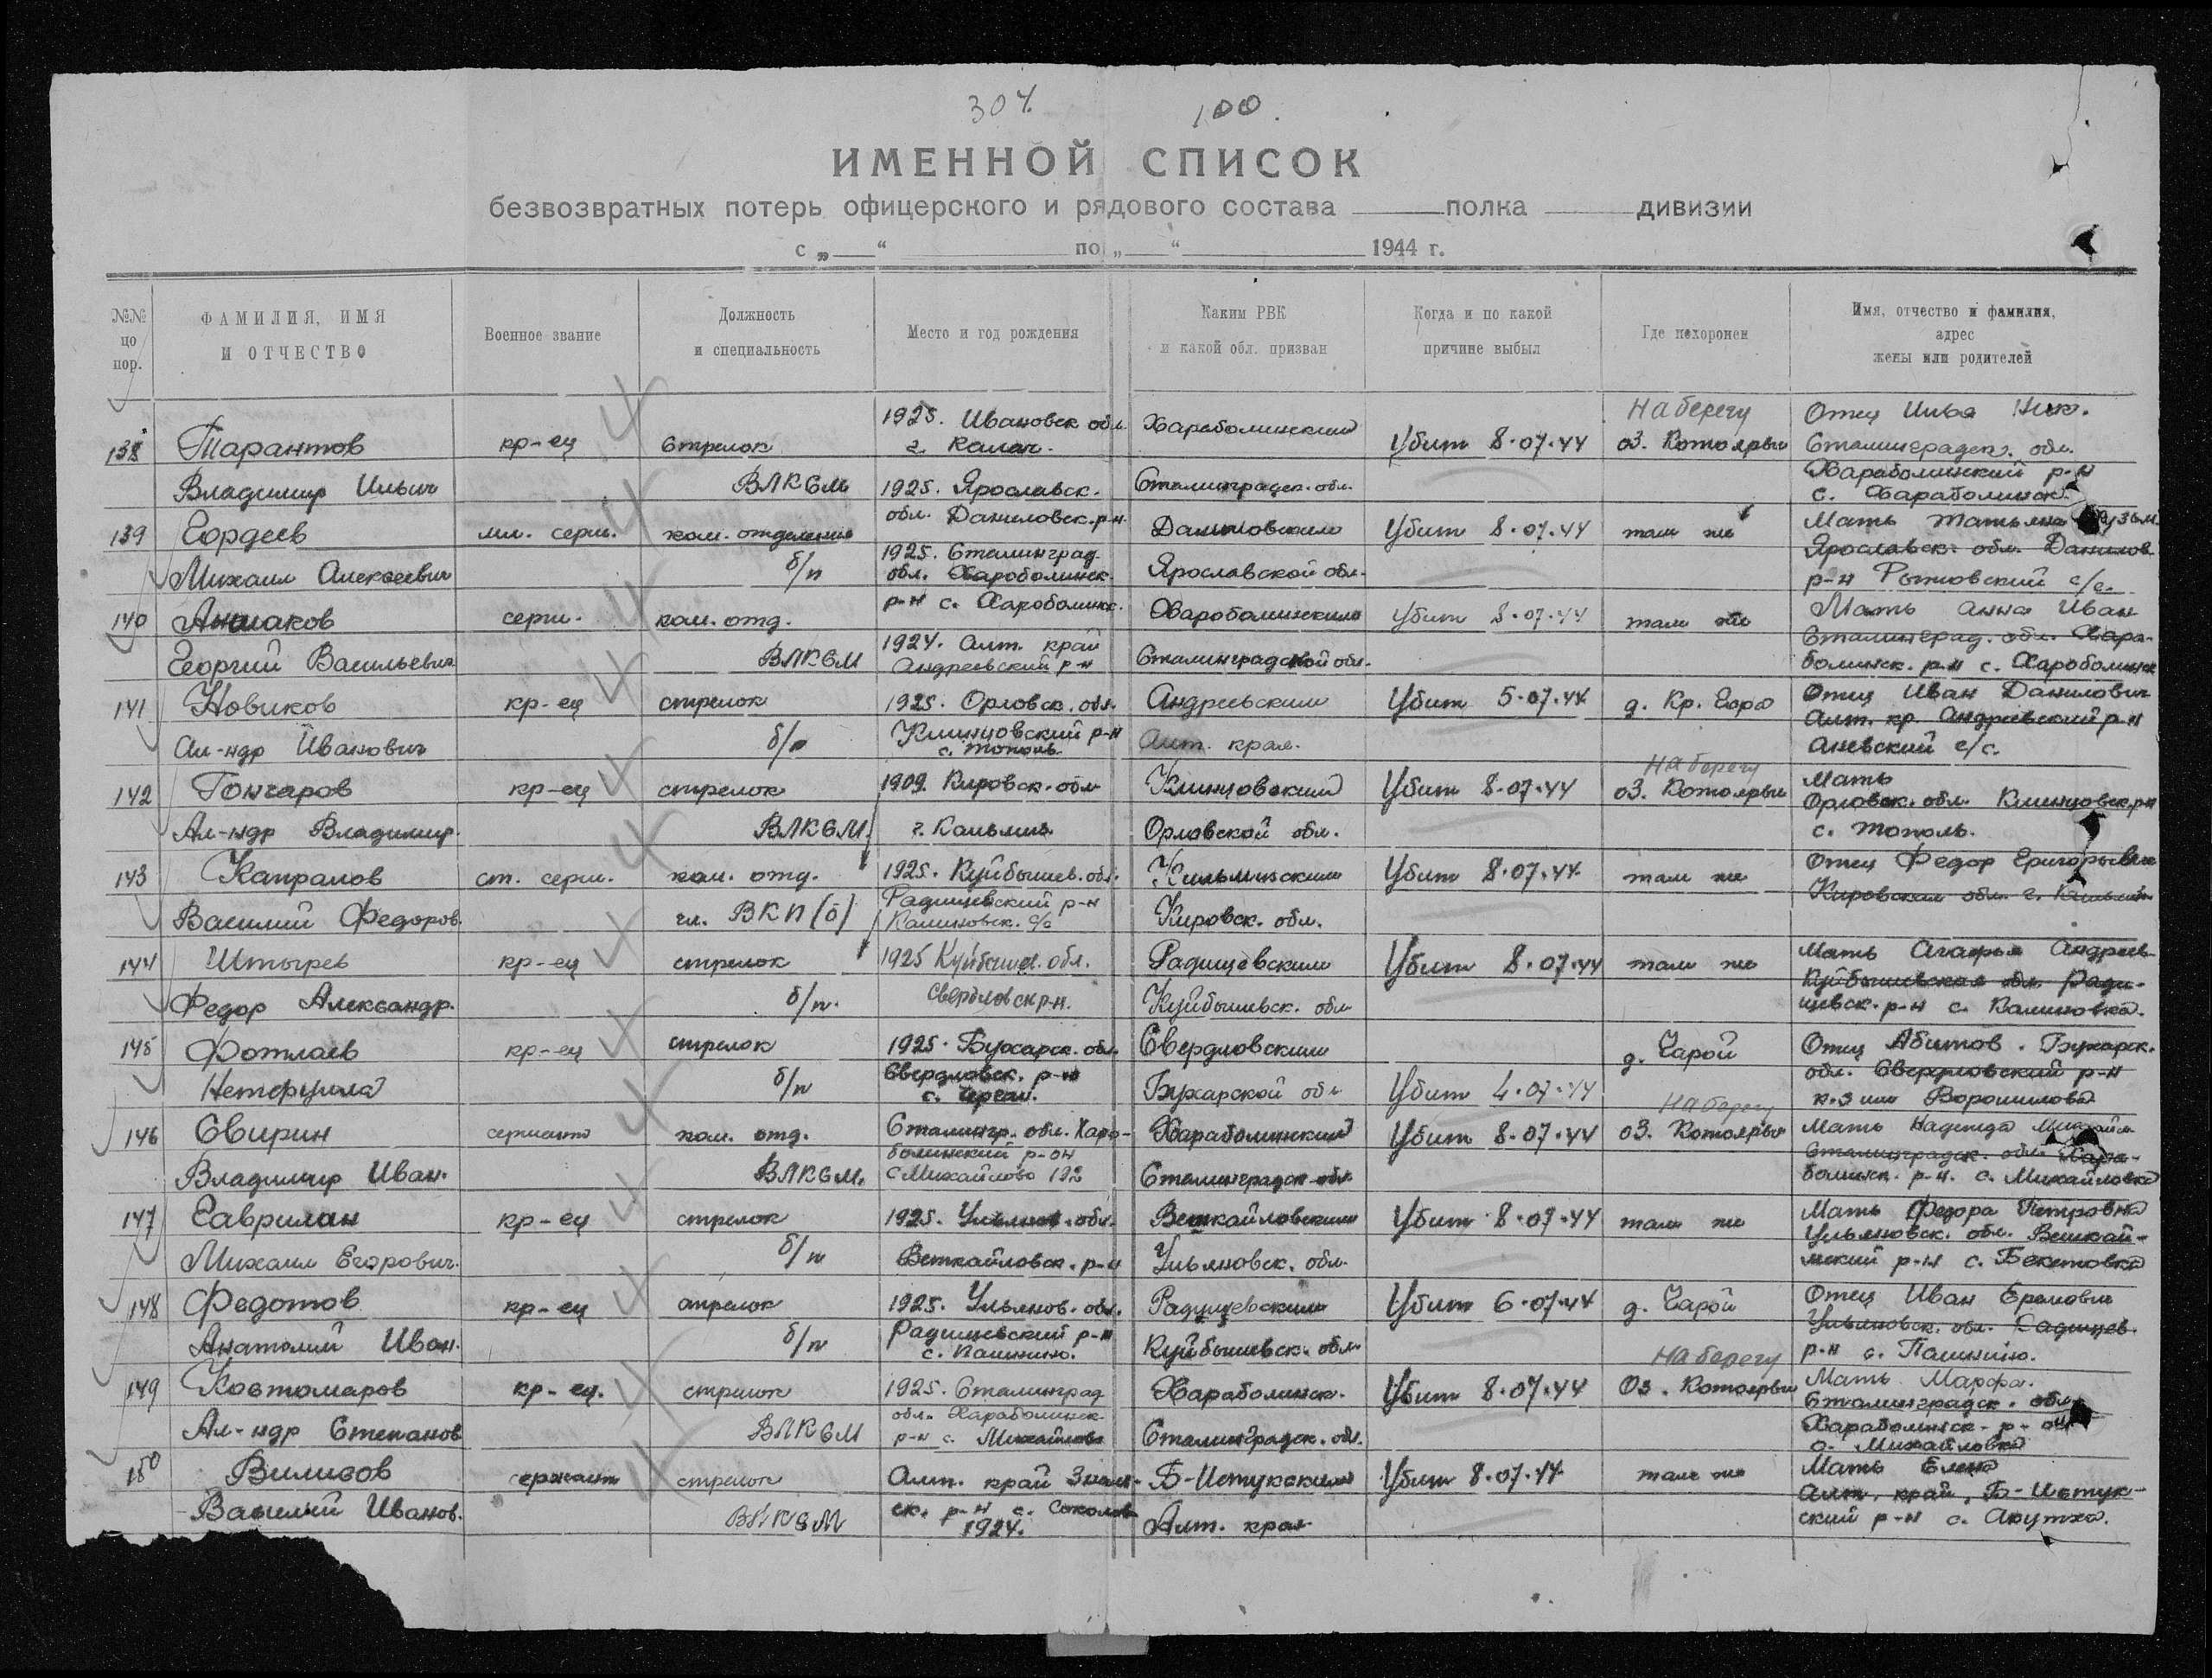 307. 100.
ИМЕННОЙ СПИСОК
безвозвратных потерь офицерского и рядового состава ____ полка ____ дивизии
с „___“ ______ по „___“ ______ 1944 г.
№№ по пор.
ФАМИЛИЯ, ИМЯ И ОТЧЕСТВО
Военное звание
Должность и специальность
Место и год рождения
Каким РВК и какой обл. призван
Когда и по какой причине выбыл
Где похоронен
Имя, отчество и фамилия, адрес жены или родителей
138 Тарантов Владимир Ильич
кр-ец
стрелок ВЛКСМ
1925. Ивановск обл. г. Калач.
Хараболинским Сталинградск. обл.
Убит 8.07.44
На берегу оз. Котоярви
Отец Илья Ник. Сталинградск. обл. Хараболинский р-н с. Хараболинск.
139 Гордеев Михаил Алексеевич
мл. серж.
ком. отделения б/п
1925. Ярославск. обл. Даниловск. р-н.
Даниловским Ярославской обл.
Убит 8.07.44
там же
Мать Татьяна Ярославск. обл. Данилов. р-н с/с.
140 Аншаков Георгий Васильевич
серж.
ком. отд. ВЛКСМ
1925. Сталинград обл. Хароболинск. р-н с. Хароболинск.
Хароболинским Сталинградской обл.
Убит 8.07.44
там же
Мать Анна Иван Сталинград. обл. Харо-
болинск. р-н с. Хароболинск
141 Новиков Ал-ндр Иванович
кр-ец
стрелок б/п
1924. Алт. край Андреевский р-н
Андреевским Алт. края.
Убит 5.07.44
д. Кр. Гора
Отец Иван Данилович Алт. кр. Андреевский р-н с/с.
142 Гончаров Ал-ндр Владимир.
кр-ец
стрелок ВЛКСМ.
1925. Орловск. обл. Клинцовский р-н с. Тополь.
Клинцовский Орловской обл.
Убит 8.07.44
На берегу оз. Котоярви
Мать Орловск. обл. Клинцовск. р-н с. Тополь.
143 Капралов Василий Федоров.
ст. серж.
ком. отд. чл. ВКП(б)
1909. Кировск. обл. г. Кильмез.
Кировск. обл.
Убит 8.07.44
там же
Отец Федор Григорьевич Кировская обл.
144 Штырев Федор Александр.
кр-ец
стрелок б/п.
1925. Куйбышев. обл. Радищевский р-н Калиновск. с/с
Радищевским Куйбышевск. обл.
Убит 8.07.44
там же
Мать Агафья Андреев. Куйбышевская обл. Ради-
щевск. р-н с. Калиновка.
145 Фотлаев
кр-ец
стрелок б/п
1925 Куйбышев. обл. Свердловск р-н.
Свердловским Бухарской обл
Убит 4.07.44
д. Чарой
Отец Абитов. Бухарск. обл. Свердловский р-н к-з им Ворошилова
146 Свирин Владимир Иван.
сержант
ком. отд. ВЛКСМ.
1925. Бухарск. обл. Свердловск. р-н
Сталингр. обл. Хара-
болинский р-он с Михайлово 192
Хараболинский Сталинградск обл.
Убит 8.07.44
На берегу оз. Котоярви
Мать Надежда Сталинградск. обл. Хара-
болинск. р-н. с. Михайловка
147 Гаврилин Михаил Егорович.
кр-ец
стрелок б/п
1925. Ульянов. обл. Вешкайловск. р-н
Вешкайловским Ульяновск. обл.
Убит 8.07.44
там же
Мать Федора Петровна Ульяновск. обл. Вешкай-
мский р-н с. Бекетовка
148 Федотов Анатолий Иван.
кр-ец
стрелок б/п
1925. Ульянов. обл. Радищевский р-н с. Паншино.
Радищевским Куйбышевск. обл.
Убит 6.07.44
д. Чарой
Отец Иван Ульяновск. обл. Радищев. р-н с. Паншино.
149 Костомаров Ал-ндр Степанов
кр-ец.
стрелок ВЛКСМ
1925. Сталинград обл. Хараболинск. р-н с. Михайлово
Хараболинск. Сталинградск. обл.
Убит 8.07.44
На берегу Оз. Котоярви
Мать Марфа. Сталинградск. обл. Хараболинск. р-он с. Михайловка
150 Вилисов Василий Иванов.
сержант
стрелок ВЛКСМ
Алт. край р-н с. 1924.
Б-Истокским Алт. края
Убит 8.07.44
там же
Мать Елена Алт. край, Б-Исток-
ский р-н с. Акутха.